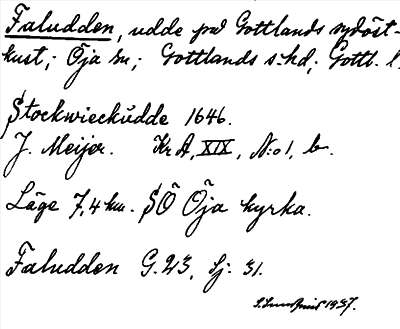 Faludden, udde på Gottlands sydöst-
kust; Öja sn; Gottlands s. hd; Gottl. l.
Stockwieckudde 1646.
J. Meijer. Kr A, XIX, N:o 1, b.
Läge 7,4 km. SÖ Öja kyrka.
Faludden G. 23, Sj: 31.
1937.